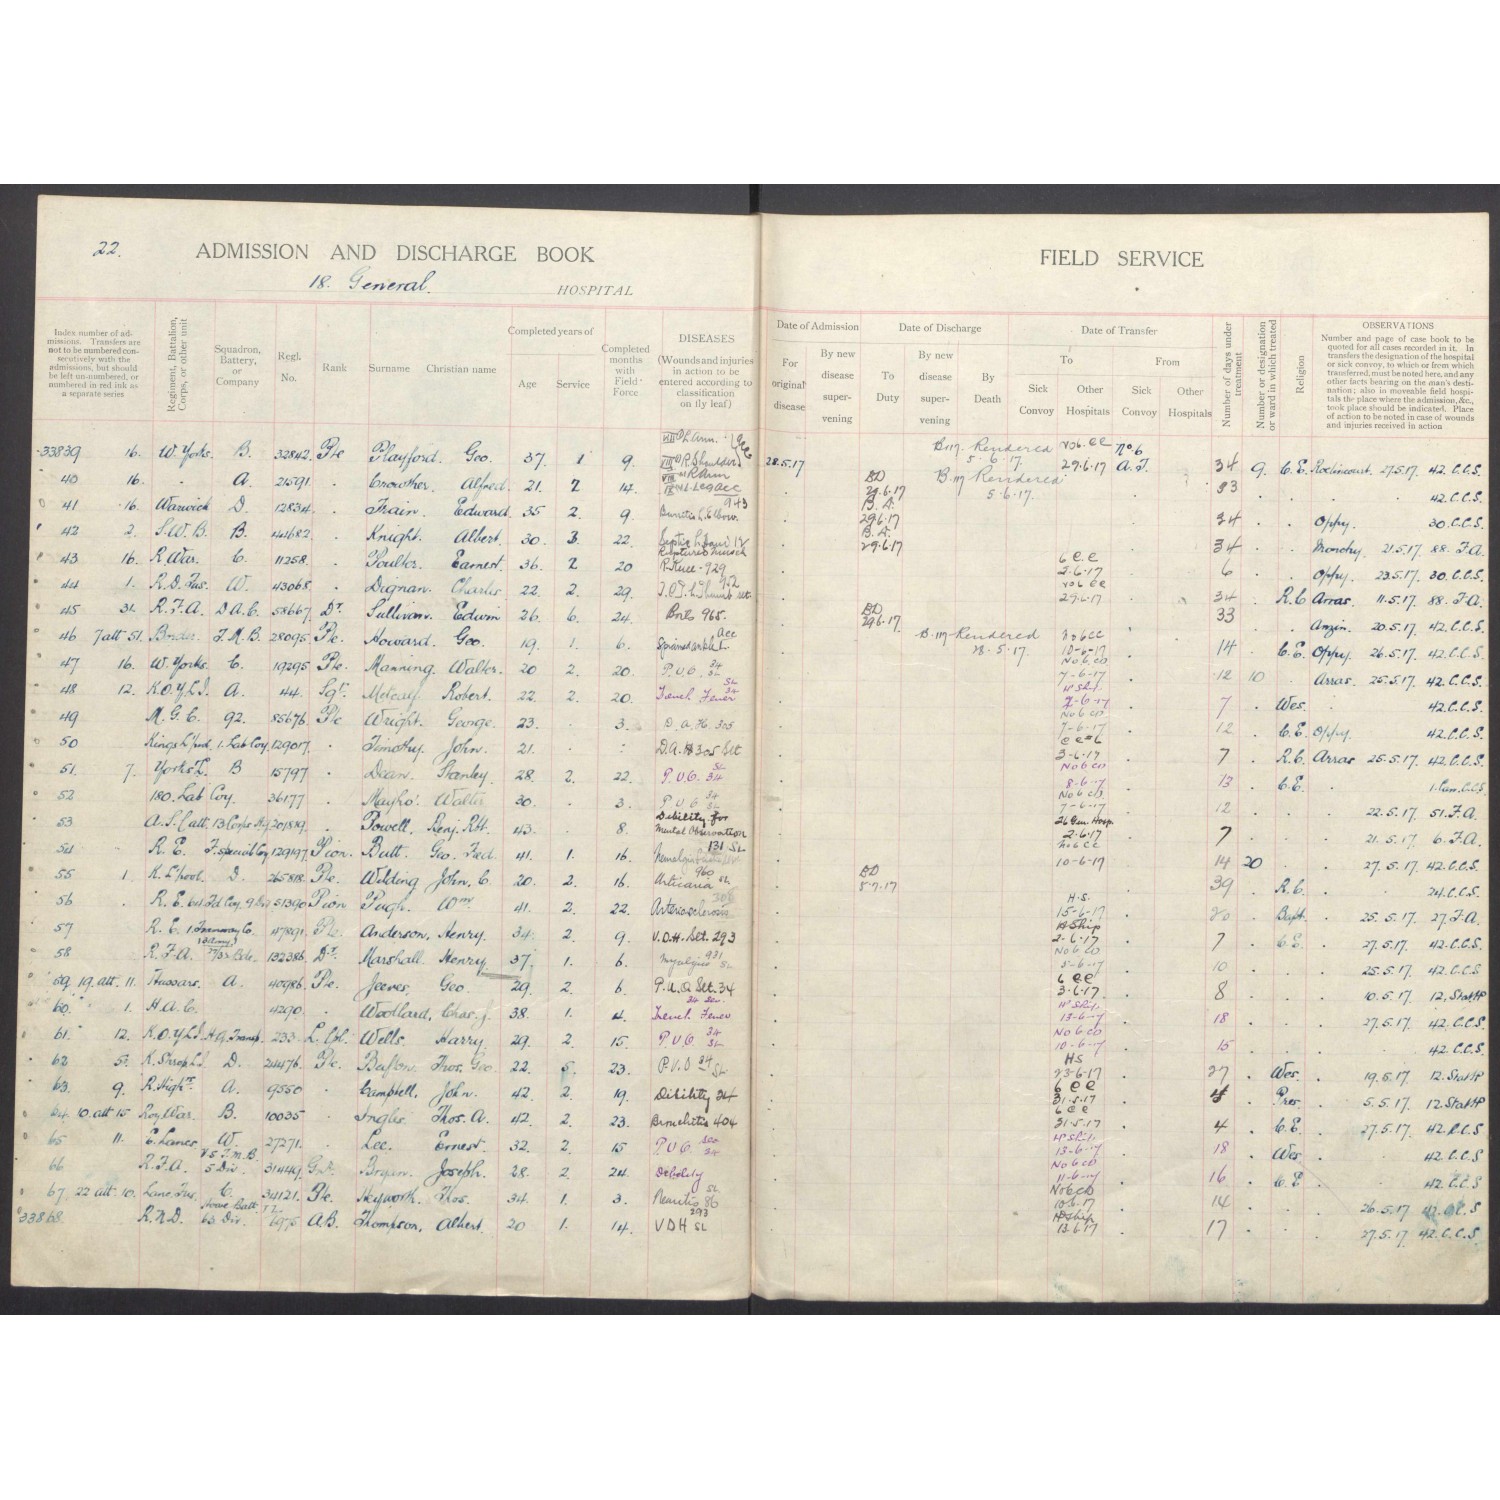 22.
ADMISSION AND DISCHARGE BOOK
FIELD SERVICE
18. General. HOSPITAL
Index number of admissions. Transfers are not to be numbered consecutively with the admissions, but should be left un-numbered, or numbered in red ink as a separate series
Regiment, Battalion, Corps, or other unit
Squadron, Battery, or Company
Regl. No.
Rank
Surname
Christian name
Completed years of
Age
Service
Completed months with Field Force
DISEASES
(Wounds and injuries in action to be entered according to classification on fly leaf)
Date of Admission
For original disease
By new disease supervening
Date of Discharge
To Duty
By new disease supervening
By Death
Date of Transfer
To
Sick Convoy
Other Hospitals
From
Sick Convoy
Other Hospitals
Number of days under treatment
Number or designation or ward in which treated
Religion
OBSERVATIONS
Number and page of case book to be quoted for all cases recorded in it. In transfers the designation of the hospital or sick convoy, to which or from which transferred, must be noted here, and any other facts bearing on the man's destination; also in moveable field hospitals the place where the admission, &c., took place should be indicated. Place of action to be noted in case of wounds and injuries received in action
33839 16. W. Yorks. B. 32842. Pte Playford. Geo. 37. 1 9. R. Shoulder 28.5.17 B.M. Rendered 5.6.17. No 6. CC 29.6.17 No 6 A.T. 34 9. C.E. Roclincourt. 27.5.17. 42. C.C.S.
40 16. . A. 21591. . Crowther. Alfred. 21. 2 14. L. Leg acc . BD 29.6.17 B.M Rendered 5.6.17. 33 42. C.C.S.
41 16. Warwick D. 12834. . Train. Edward. 35 2. 9. 943 L. Elbow. . B.A. 29.6.17 34 . . Oppy. 30. C.C.S.
42 2. S.W.B. B. 44682. . Knight. Albert. 30. 3. 22. Septic L. . B.A. 29.6.17 34 . . Monchy. 21.5.17. 88. F.A.
43 16. R. War. C. 11258. . Poulter. Earnest. 36. 2 20 R. Knee - 929 . 6 CC 2.6.17 6 . . Oppy. 23.5.17. 30. C.C.S.
44 1. R.D. Fus. W. 43068. . Dignan. Charles. 22. 2. 29. 952 L. Thumb . No 6 CC 29.6.17 34 . R.C Arras. 11.5.17. 88. F.A.
45 31. R.F.A. D.A.C. 58667. Dr. Sullivan. Edwin 26. 6. 24. Boils 965. . BD 29.6.17. 33 . . Anzin. 20.5.17. 42. C.C.S.
46 7 att 51. Border. T.M.B. 28095. Pte. Howard. Geo. 19. 1. 6. Sprained ankle L. acc . B.M Rendered 28.5.17. No 6 CC 10-6-17 14 . C.E. Oppy. 26.5.17. 42. C.C.S.
47 16. W. Yorks. C. 19295 Pte. Manning. Walter. 20 2. 20. P.U.O. 34 SL . No 6 CO 7-6-17 12 10 . Arras. 25.5.17. 42. C.C.S.
48 12. K.O.Y.L.I. A. 44. Sgt. Robert. 22. 2. 20. Trench Fever 34 SL . H Ship. 7-6-17 7 . Wes. 42. C.C.S.
49 M.G.C. 92. 85676 Pte Wright. George. 23. . 3. D.A.H. 305 . No 6 CO 7-6-17 12 . C.E. Oppy. 42. C.C.S.
50 Kings L'pool. 1. Lab Coy. 129017. . Timothy. John. 21. D.A.H 305 Slt . CC 6 3-6-17 7 . R.C. Arras 25.5.17. 42. C.C.S.
51. 7. Yorks L. B 15797 . Dean. Stanley. 28. 2. 22. P.U.O. 34 SL . No 6 CO 8-6-17 13 . C.E. 1. Can. C.C.S.
52 180. Lab Coy. 36177 . Mayho. Walter 30. . 3. P.U.O 34 SL . No 6 CO. 7-6-17 12 22.5.17. 51. F.A.
53 A.S.C att. 13 Corps Hq 201819. . Powell. Benj. Rbt. 43. . 8. Dibility for mental Observation . 26 Gen. Hosp. 2.6.17 7 21.5.17. 6. F.A.
54 R.E. F. Special Coy 129197. Pion. Butt. Geo. Fred. 41. 1. 16. 131 SL . No 6 CC 10-6-17 14 20 27.5.17. 42. C.C.S.
55 1 K. L'pool. D. 265818. Pte. Wilding John. C. 20. 2. 16. Urticaria 960 SL . BD 5-7-17 39 . R.C. 24. C.C.S.
56 R.E. 64 Fd Coy. 9 Div 51390 Pion Pugh. Wm. 41. 2. 22. Arteriosclerosis 306 . H.S. 15-6-17 20 . Bapt. 25.5.17. 27. F.A.
57 R.E. 1. Tramway Co. (3 Army) 117891. Pte. Anderson, Henry. 34. 2. 9. V.D.H. Slt. 293 . H. Ship 2-6-17 7 . C.E. 27.5.17. 42. C.C.S.
58 R.F.A. 132386. Dr. Marshall. Henry. 37. 1. 6. Myalgia 931 SL . No 6 CO 5-6-17 10 25.5.17. 42. C.C.S
59. 19. att. 11. Hussars. A. 40986. Pte. Jeeves. Geo. 29. 2. 6. P.U.O. Slt. 34 . 6 CC 3-6-17. 8 10.5.17. 12. Stat H
60. 1. H.A.C. 4290. . Woodland. Chas. J. 38. 1. 4. 34 sev. Trench Fever . H Ship. 13-6-17 18 27.5.17. 42. C.C.S.
61. 12. K.O.Y.L.I. Hq. Transp. 233. L. Cpl. Wells. Harry. 29. 2. 15. P.U.O. 34 SL . No 6 CO 10-6-17 15 42. C.C.S.
62 5. K. Shrop L.I. D. 24476. Pte. Thos. Geo. 22. 5. 23. P.U.O 34 SL . HS 23-6-17 27 . Wes. 19.5.17. 12. Stat H
63. 9. R. High. A. 9550 . Campbell, John. 42. 2. 19. Dibility 34 . 6 CC 31-5-17 4 . Pres. 5.5.17. 12. Stat H
64. 10. att 15. Roy. War. B. 10035 . Inglis. Thos. A. 42. 2. 23. Bronchitis 404 . 6 CC 31.5.17 4 . C.E. 27.5.17. 42. C.C.S
65 11. E. Lancs. W. 27271. . Lee. Ernest. 32. 2. 15 P.U.O. sev 34 . H Shp. 13-6-17 18 . Wes. 42. C.C.S
66 R.F.A. V5 T.M.B. 5 Div. 31449 Gnr. Bryan. Joseph. 28. 2. 24. Debility . No 6 CO 11-6-17 16 . C.E. 42. C.C.S
67. 22 att. 10. Lanc. Fus. C. 34121. Pte. Heyworth. Thos. 34. 1. 3. Neuritis 86 SL . No 6 CO 10.6.17 14 26.5.17. 42. C.C.S
33868. R.N.D. Howe Batt. 63 Div. A.B. Thompson, Albert. 20 1. 14. 293 VDH SL . H Ship 13.6.17 17 27.5.17 42. C.C.S.